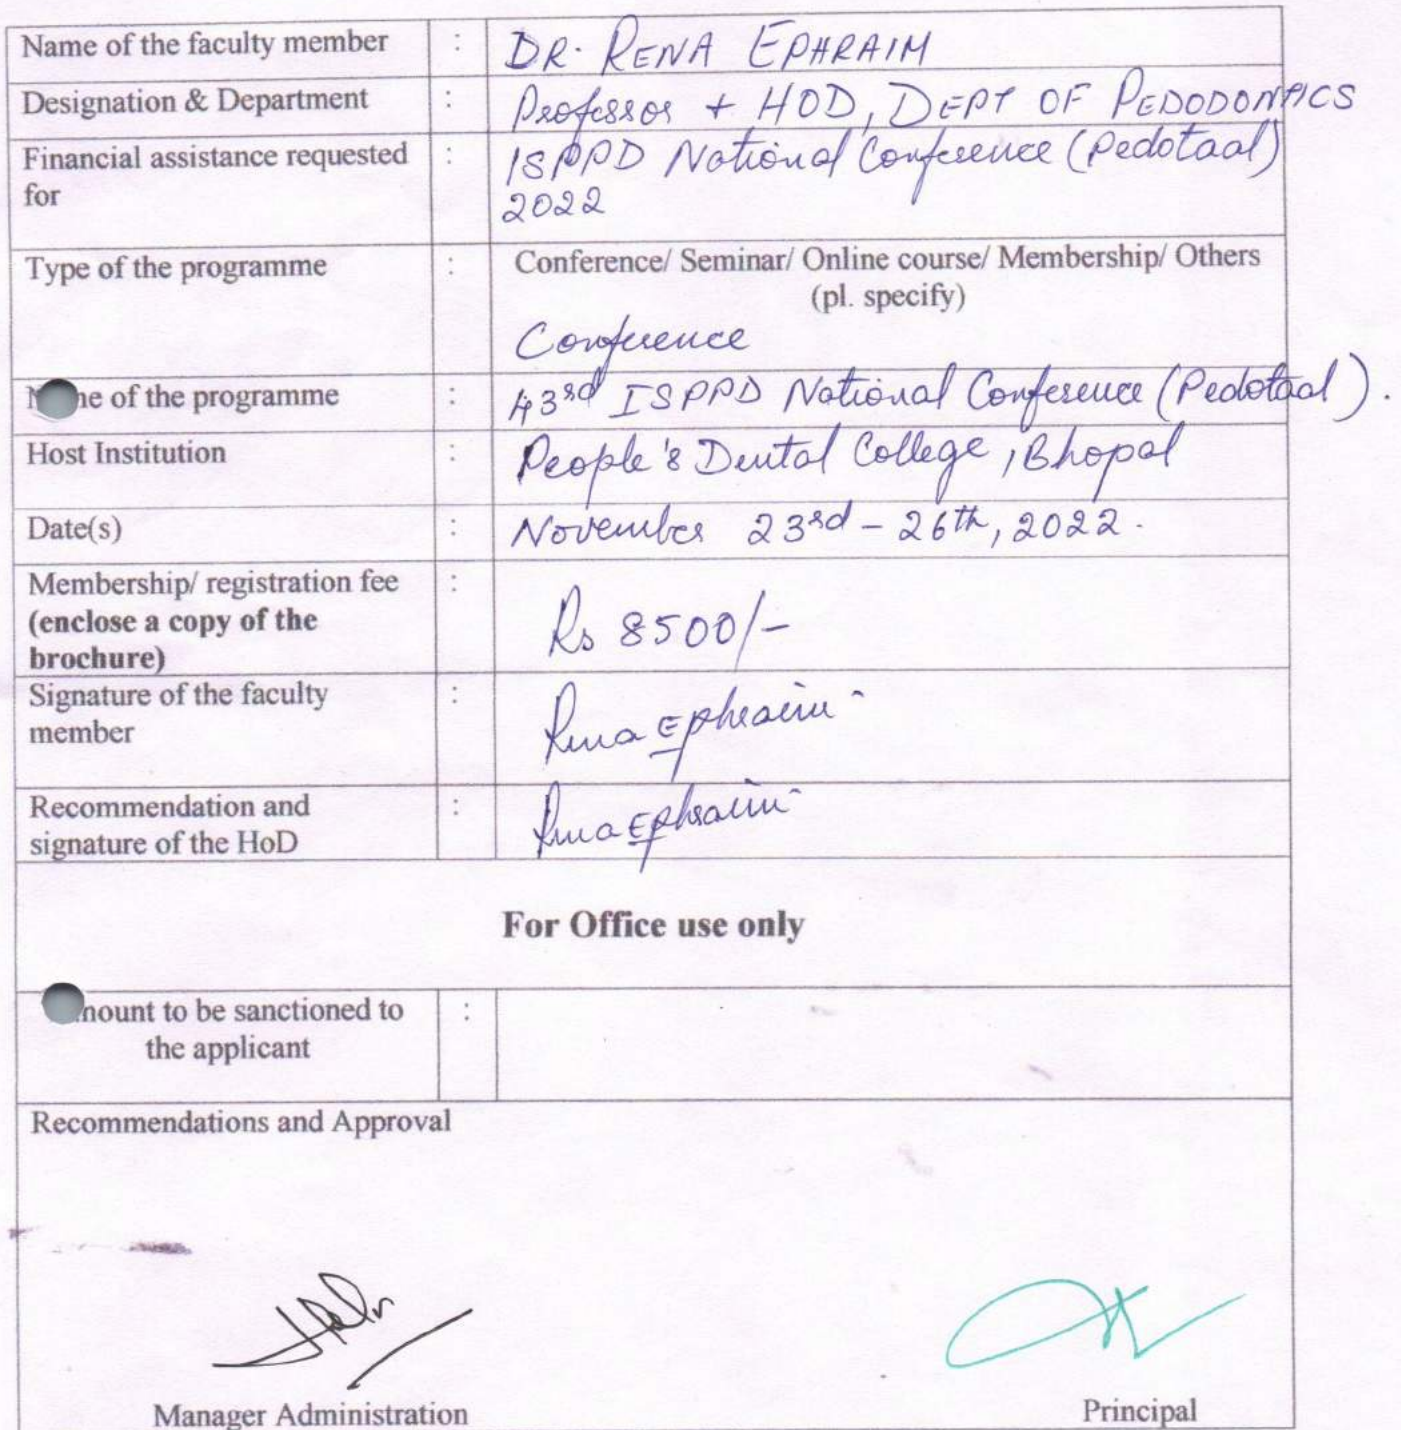 Name of the faculty member : DR. RENA EPHRAIM
Designation & Department : Professor + HOD, DEPT OF PEDODONTICS
Financial assistance requested : ISPPD National Conference (Pedotaal)
for 2022
Type of the programme : Conference/ Seminar/ Online course/ Membership/ Others
(pl. specify)
Conference
me of the programme : 43rd ISPPD National Conference (Pedotaal).
Host Institution : People's Dental College, Bhopal
Date(s) : November 23rd - 26th, 2022.
Membership/ registration fee :
(enclose a copy of the Rs 8500/-
brochure)
Signature of the faculty : Rena Ephraim
member
Recommendation and : Rena Ephraim
signature of the HoD
For Office use only
mount to be sanctioned to :
the applicant
Recommendations and Approval
Manager Administration Principal